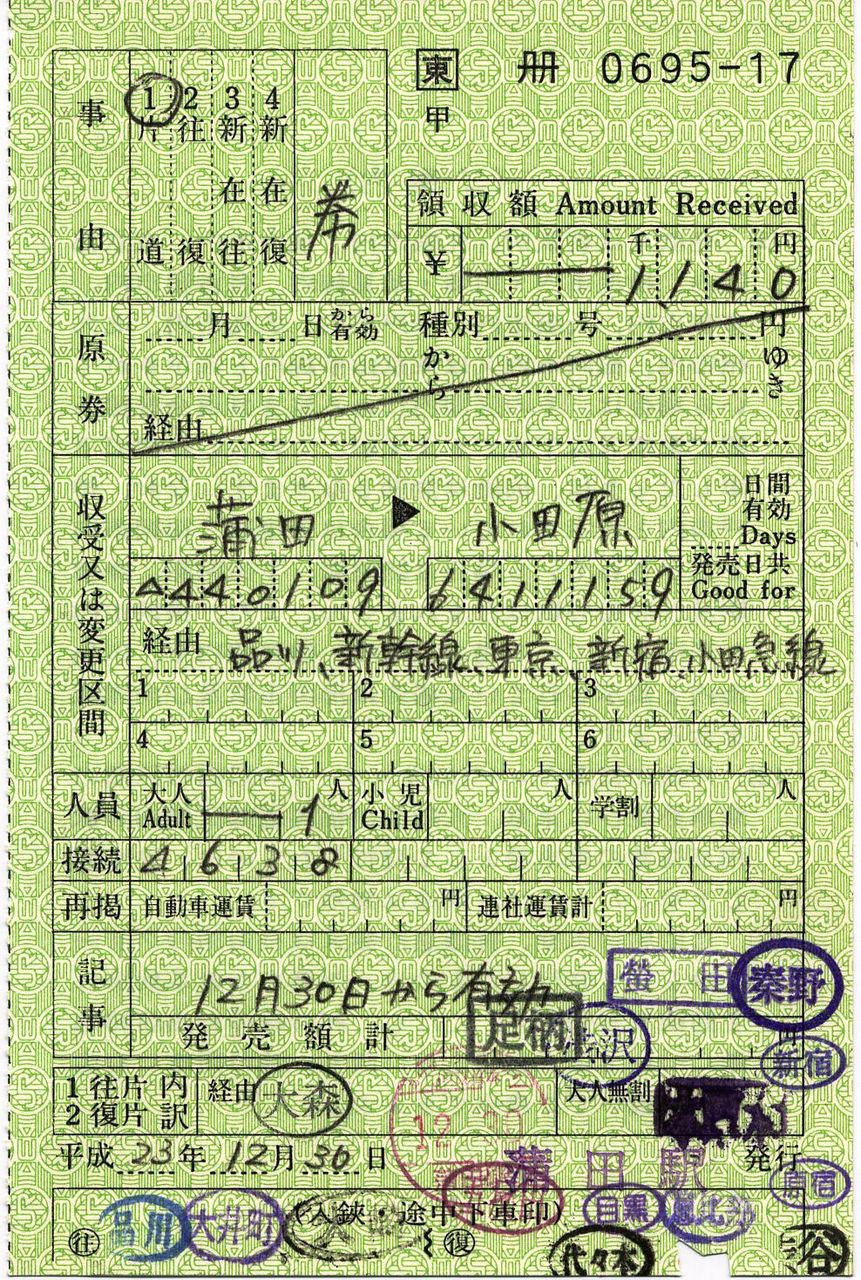 東 冊 0695-17
甲
事由
1 片道
2 往復
3 新在往
4 新在復
領収額 Amount Received
¥ 千 円
1,140
原券
月 日から有効 種別 号 円
から ゆき
経由
収受又は変更区間
蒲田 ▶ 小田原
4440109 6411159
日間有効
Days
発売日共
Good for
経由 品川、新幹線、東京、新宿、小田急線
1 2 3
4 5 6
人員 大人 Adult 1 人 小児 Child 人 学割 人
接続 4638
再掲 自動車運賃 円 連社運賃計 円
記事
12月30日から有効
秦野
足柄
発売額計 円
新宿
1 往片 内訳 経由 大人無割
2 復片
大森
平成 23 年 12 月 30 日 蒲田駅 発行
原宿
品川 大井町 (入鋏・途中下車印) 目黒
往 復
代々木